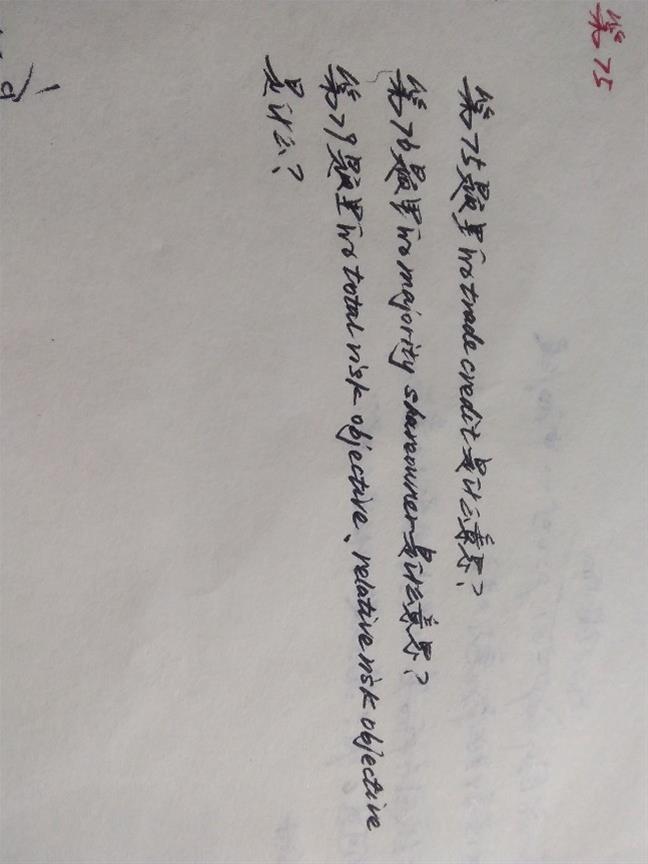 第75
第75题里的trade credit是什么意思?
第76题里的majority shareowner是什么意思?
第79题里的total risk objective、relative risk objective
是什么?